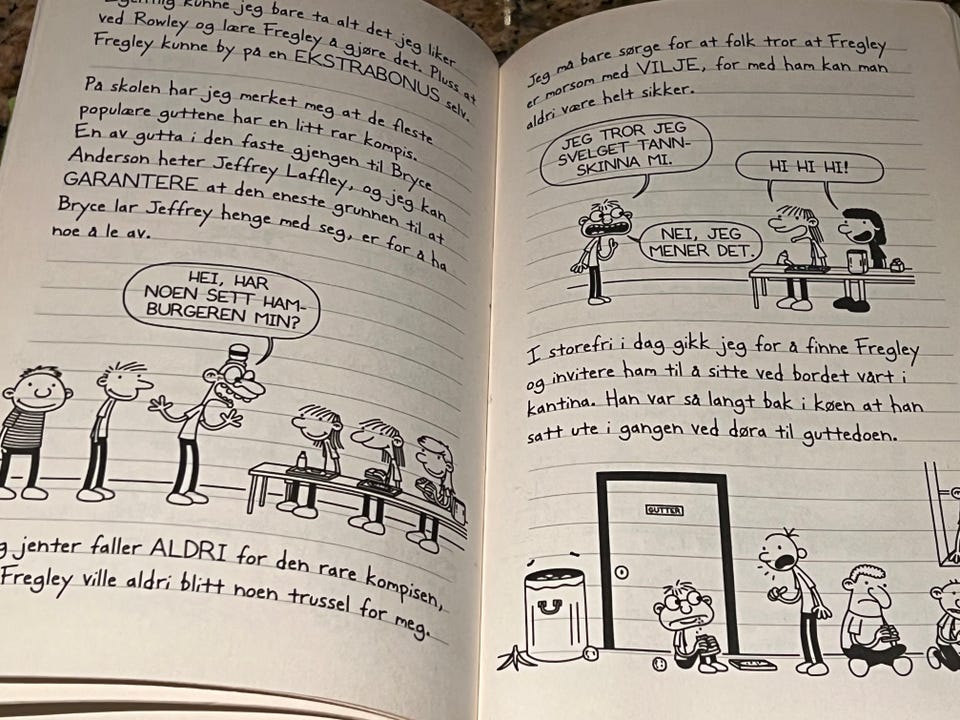 kunne jeg bare ta alt det jeg liker
ved Rowley og lære Fregley å gjøre det. Pluss at
Fregley kunne by på en EKSTRABONUS selv.
På skolen har jeg merket meg at de fleste
populære guttene har en litt rar kompis.
En av gutta i den faste gjengen til Bryce
Anderson heter Jeffrey Laffley, og jeg kan
GARANTERE at den eneste grunnen til at
Bryce lar Jeffrey henge med seg, er for å ha
noe å le av.
HEI, HAR
NOEN SETT HAM-
BURGEREN MIN?
jenter faller ALDRI for den rare kompisen,
Fregley ville aldri blitt noen trussel for meg.
Jeg må bare sørge for at folk tror at Fregley
er morsom med VILJE, for med ham kan man
aldri være helt sikker.
JEG TROR JEG
SVELGET TANN-
SKINNA MI.
HI HI HI!
NEI, JEG
MENER DET.
I storefri i dag gikk jeg for å finne Fregley
og invitere ham til å sitte ved bordet vårt i
kantina. Han var så langt bak i køen at han
satt ute i gangen ved døra til guttedoen.
GUTTER